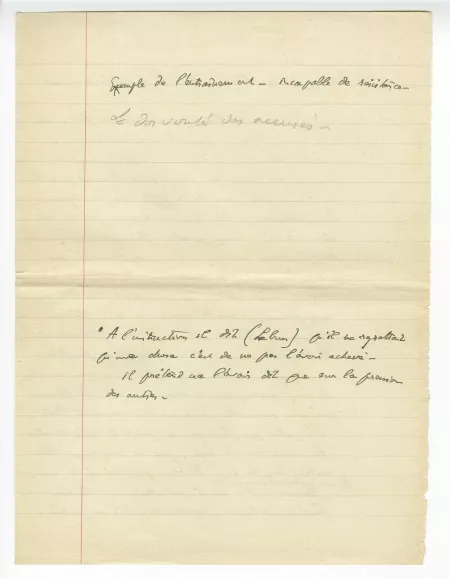 Exemple de l'entraînement – incapable de résistance –
Le dos voûté des accusés –
* A l'instruction il dit ( ) qu'il ne regrettait
qu'une chose c'est de ne pas l'avoir achevé –
il prétend ne l'avoir dit que sur la pression
des autres –